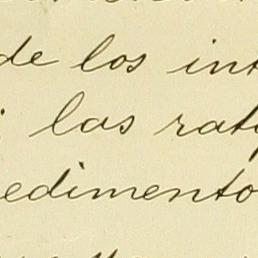 de los int
las rat
edimento